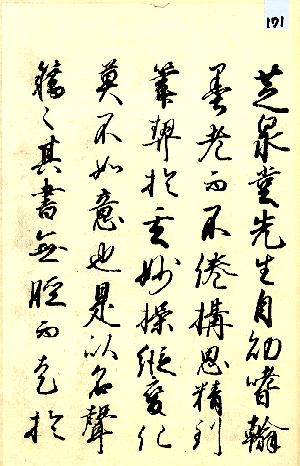 171
芝泉堂先生自幼嗜翰
墨老而不倦構思精到
筆契於玄妙操縱變化
莫不如意也是以名聲
籍々其書無脛而走於